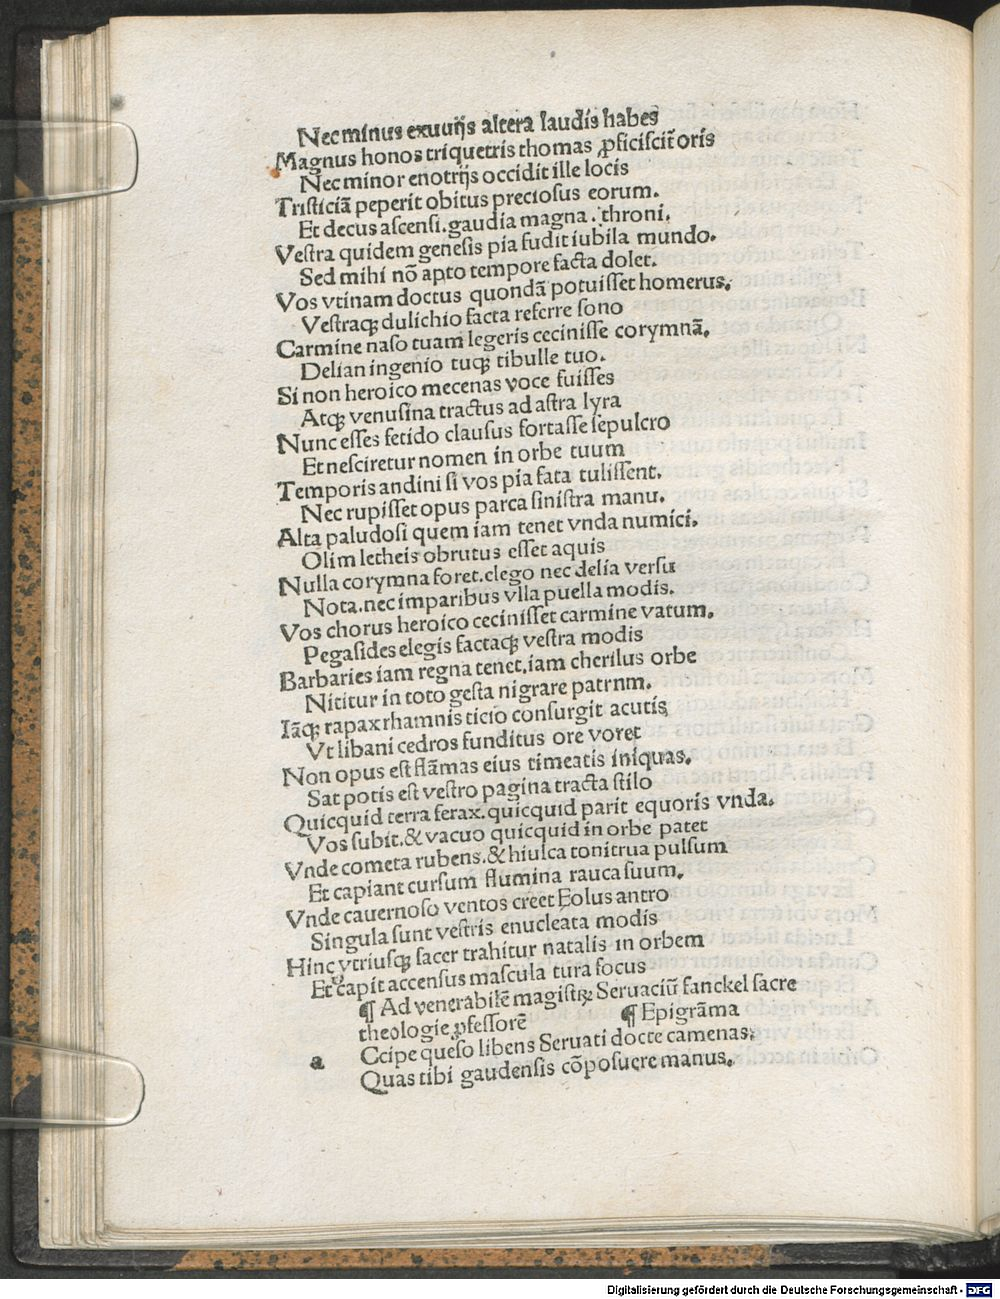 Nec minus exuuijs altera laudis habes
Magnus honos triquetris thomas ꝓficiscit᷑ oris
Nec minor enotrijs occidit ille locis
Tristiciã peperit obitus preciosus eorum.
Et decus ascensi. gaudia magna. throni.
Vestra quidem genesis pia fudit iubila mundo.
Sed mihi nõ apto tempore facta dolet.
Vos vtinam doctus quondã potuisset homerus.
Vestraqꝫ dulichio facta referre sono
Carmine naso tuam legeris cecinisse corymnã.
Delian ingenio tuqꝫ tibulle tuo.
Si non heroico mecenas voce fuisses
Atqꝫ venusina tractus ad astra lyra
Nunc esses fetido clausus fortasse sepulcro
Et nesciretur nomen in orbe tuum
Temporis andini si vos pia fata tulissent.
Nec rupisset opus parca sinistra manu.
Alta paludosi quem iam tenet vnda numici.
Olim letheis obrutus esset aquis
Nulla corymna foret. elego nec delia versu
Nota. nec imparibus vlla puella modis.
Vos chorus heroico cecinisset carmine vatum.
Pegasides elegis factaqꝫ vestra modis
Barbaries iam regna tenet. iam cherilus orbe
Nititur in toto gesta nigrare patrnm.
Iãqꝫ rapax rhamnis ticio consurgit acutis
Vt libani cedros funditus ore voret
Non opus est flãmas eius timeatis iniquas.
Sat potis est vestro pagina tracta stilo
Quicquid terra ferax. quicquid parit equoris vnda.
Vos subit. & vacuo quicquid in orbe patet
Vnde cometa rubens. & hiulca tonitrua pulsum
Et capiant cursum flumina rauca suum.
Vnde cauernoso ventos creet Eolus antro
Singula sunt vestris enucleata modis
Hinc vtriusqꝫ sacer trahitur natalis in orbem
Et capit accensus mascula tura focus
¶ Ad venerabilẽ magistrꝝ Seruaciũ fanckel sacre
theologie ꝓfessorẽ ¶ Epigrãma
a Ccipe queso libens Seruati docte camenas.
Quas tibi gaudensis cõposuere manus.
Digitalisierung gefördert durch die Deutsche Forschungsgemeinschaft - DFG